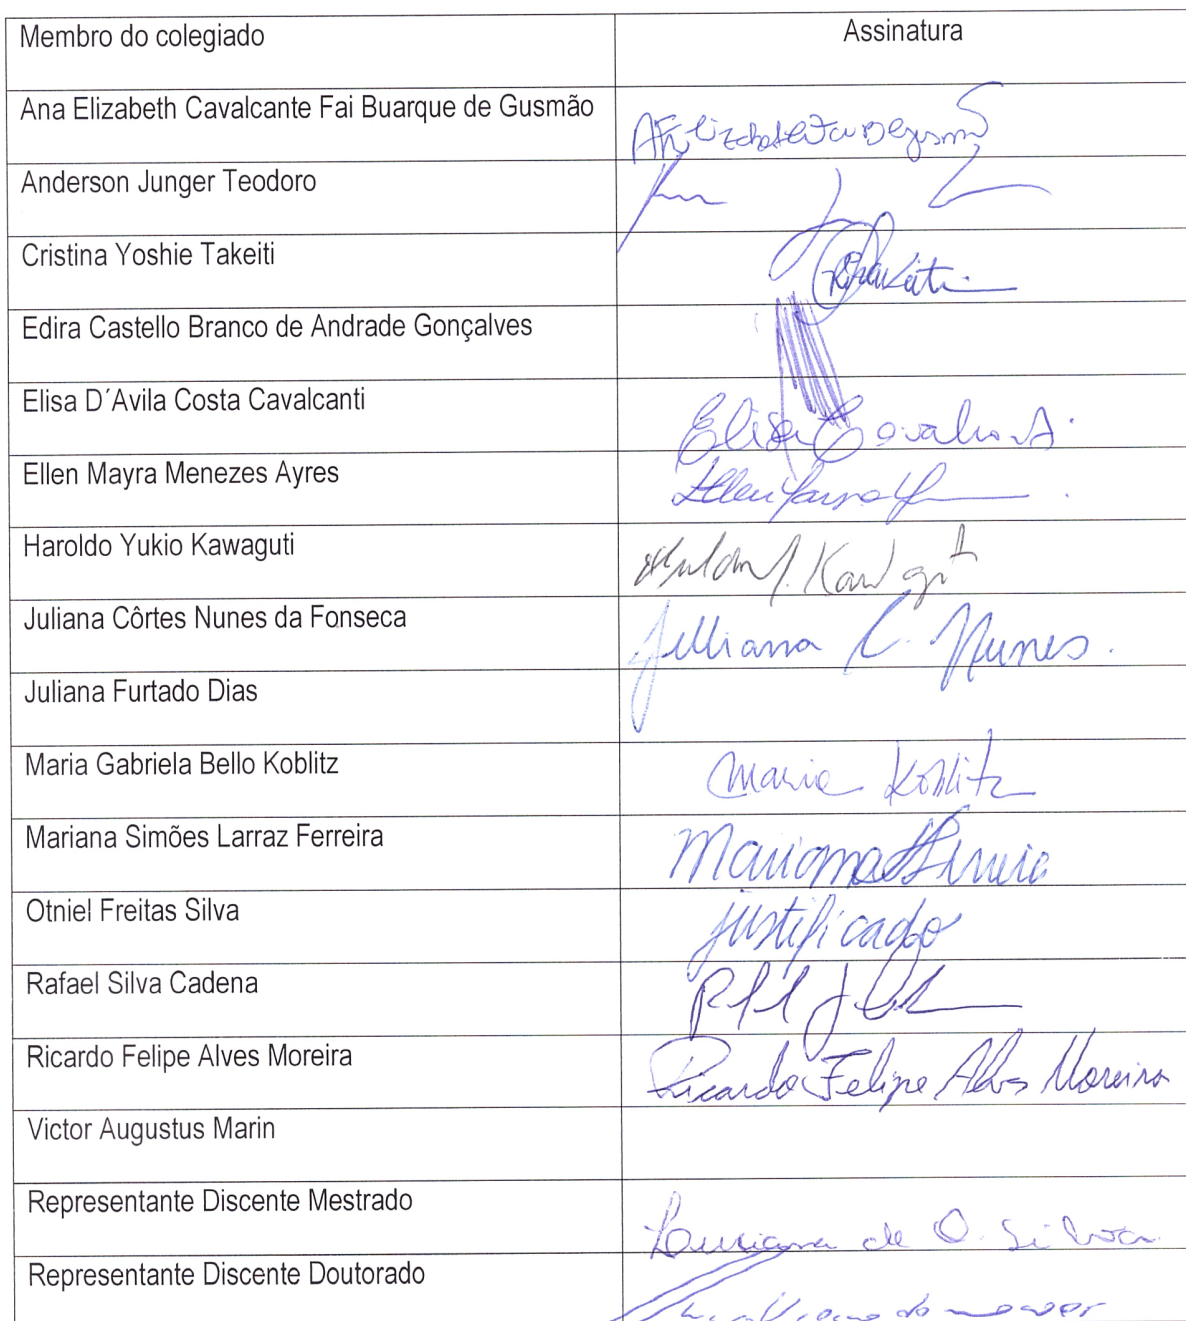 Membro do colegiado Assinatura
Ana Elizabeth Cavalcante Fai Buarque de Gusmão
Anderson Junger Teodoro
Cristina Yoshie Takeiti
Edira Castello Branco de Andrade Gonçalves
Elisa D´Avila Costa Cavalcanti Elisa Cavalcanti
Ellen Mayra Menezes Ayres
Haroldo Yukio Kawaguti
Juliana Côrtes Nunes da Fonseca Juliana C. Nunes.
Juliana Furtado Dias
Maria Gabriela Bello Koblitz Maria Koblitz
Mariana Simões Larraz Ferreira Mariana Ferreira
Otniel Freitas Silva justificado
Rafael Silva Cadena
Ricardo Felipe Alves Moreira Ricardo Felipe Alves Moreira
Victor Augustus Marin
Representante Discente Mestrado de O. Silva
Representante Discente Doutorado